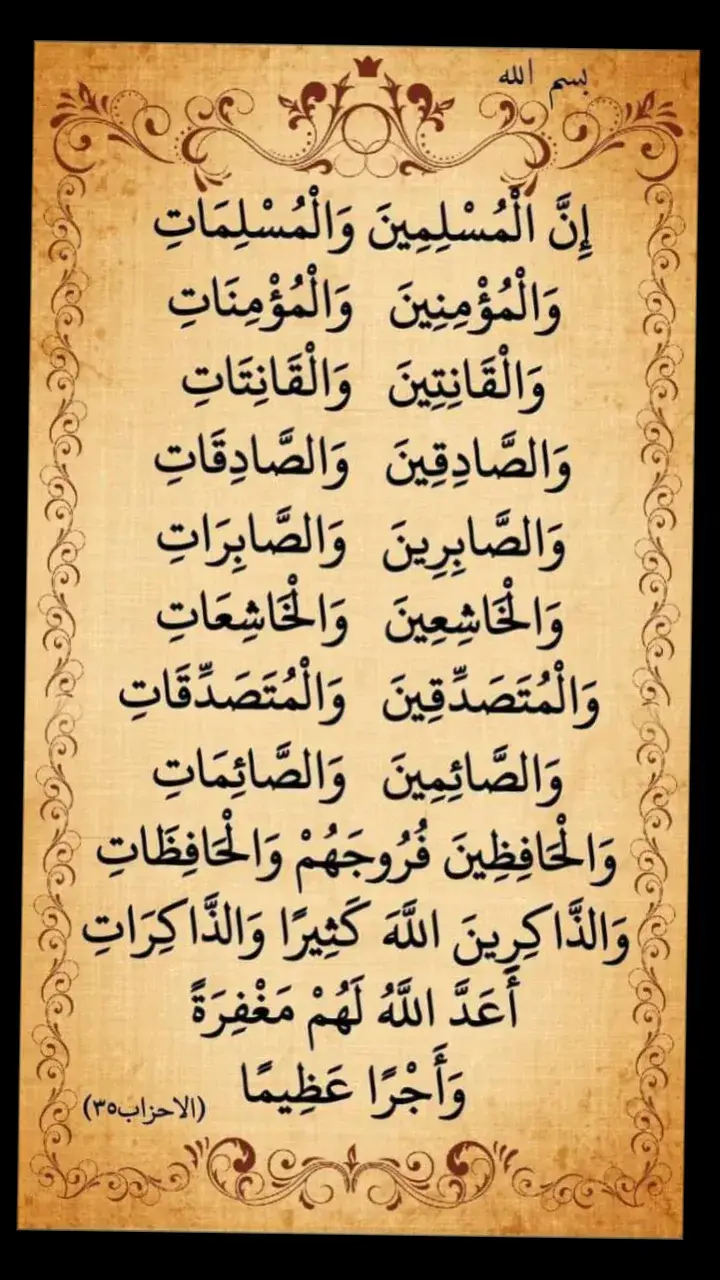 بسم الله
إِنَّ الْمُسْلِمِينَ وَالْمُسْلِمَاتِ
وَالْمُؤْمِنِينَ وَالْمُؤْمِنَاتِ
وَالْقَانِتِينَ وَالْقَانِتَاتِ
وَالصَّادِقِينَ وَالصَّادِقَاتِ
وَالصَّابِرِينَ وَالصَّابِرَاتِ
وَالْخَاشِعِينَ وَالْخَاشِعَاتِ
وَالْمُتَصَدِّقِينَ وَالْمُتَصَدِّقَاتِ
وَالصَّائِمِينَ وَالصَّائِمَاتِ
وَالْحَافِظِينَ فُرُوجَهُمْ وَالْحَافِظَاتِ
وَالذَّاكِرِينَ اللَّهَ كَثِيرًا وَالذَّاكِرَاتِ
أَعَدَّ اللَّهُ لَهُمْ مَغْفِرَةً
وَأَجْرًا عَظِيمًا
(الاحزاب٣٥)